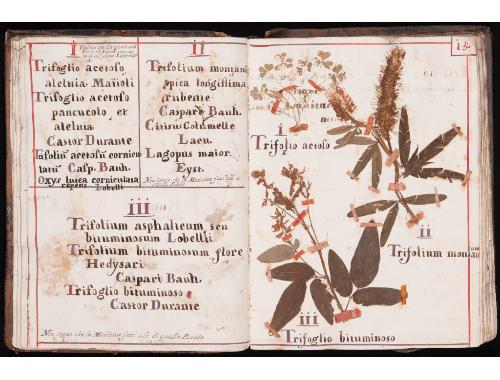 I
Trifoglio acetoso
aleluia Maiioli
Trifoglio acetoso
pancuculo, et
aleluia
Castor Durante
latii Casp. Bauh.
Oxys lutea corniculata
repens Lobelli
II
Trifolium montan
spica longissima
rubente
Caspari Bauh.
Citisus Columelle
Laeu.
Lagopus maior
Eyst.
III
Trifolium asphalticum, seu
bituminosum Lobelli
Trifolium bituminosum flore
Hedysari
Caspari Bauh.
Trifoglio bituminoso
Castor Durante
Non leggo che la Medicina faci uso di questa Pianta
i
Trifoglio actoso
ii
Trifolium montan
iii
Trifoglio bituminoso